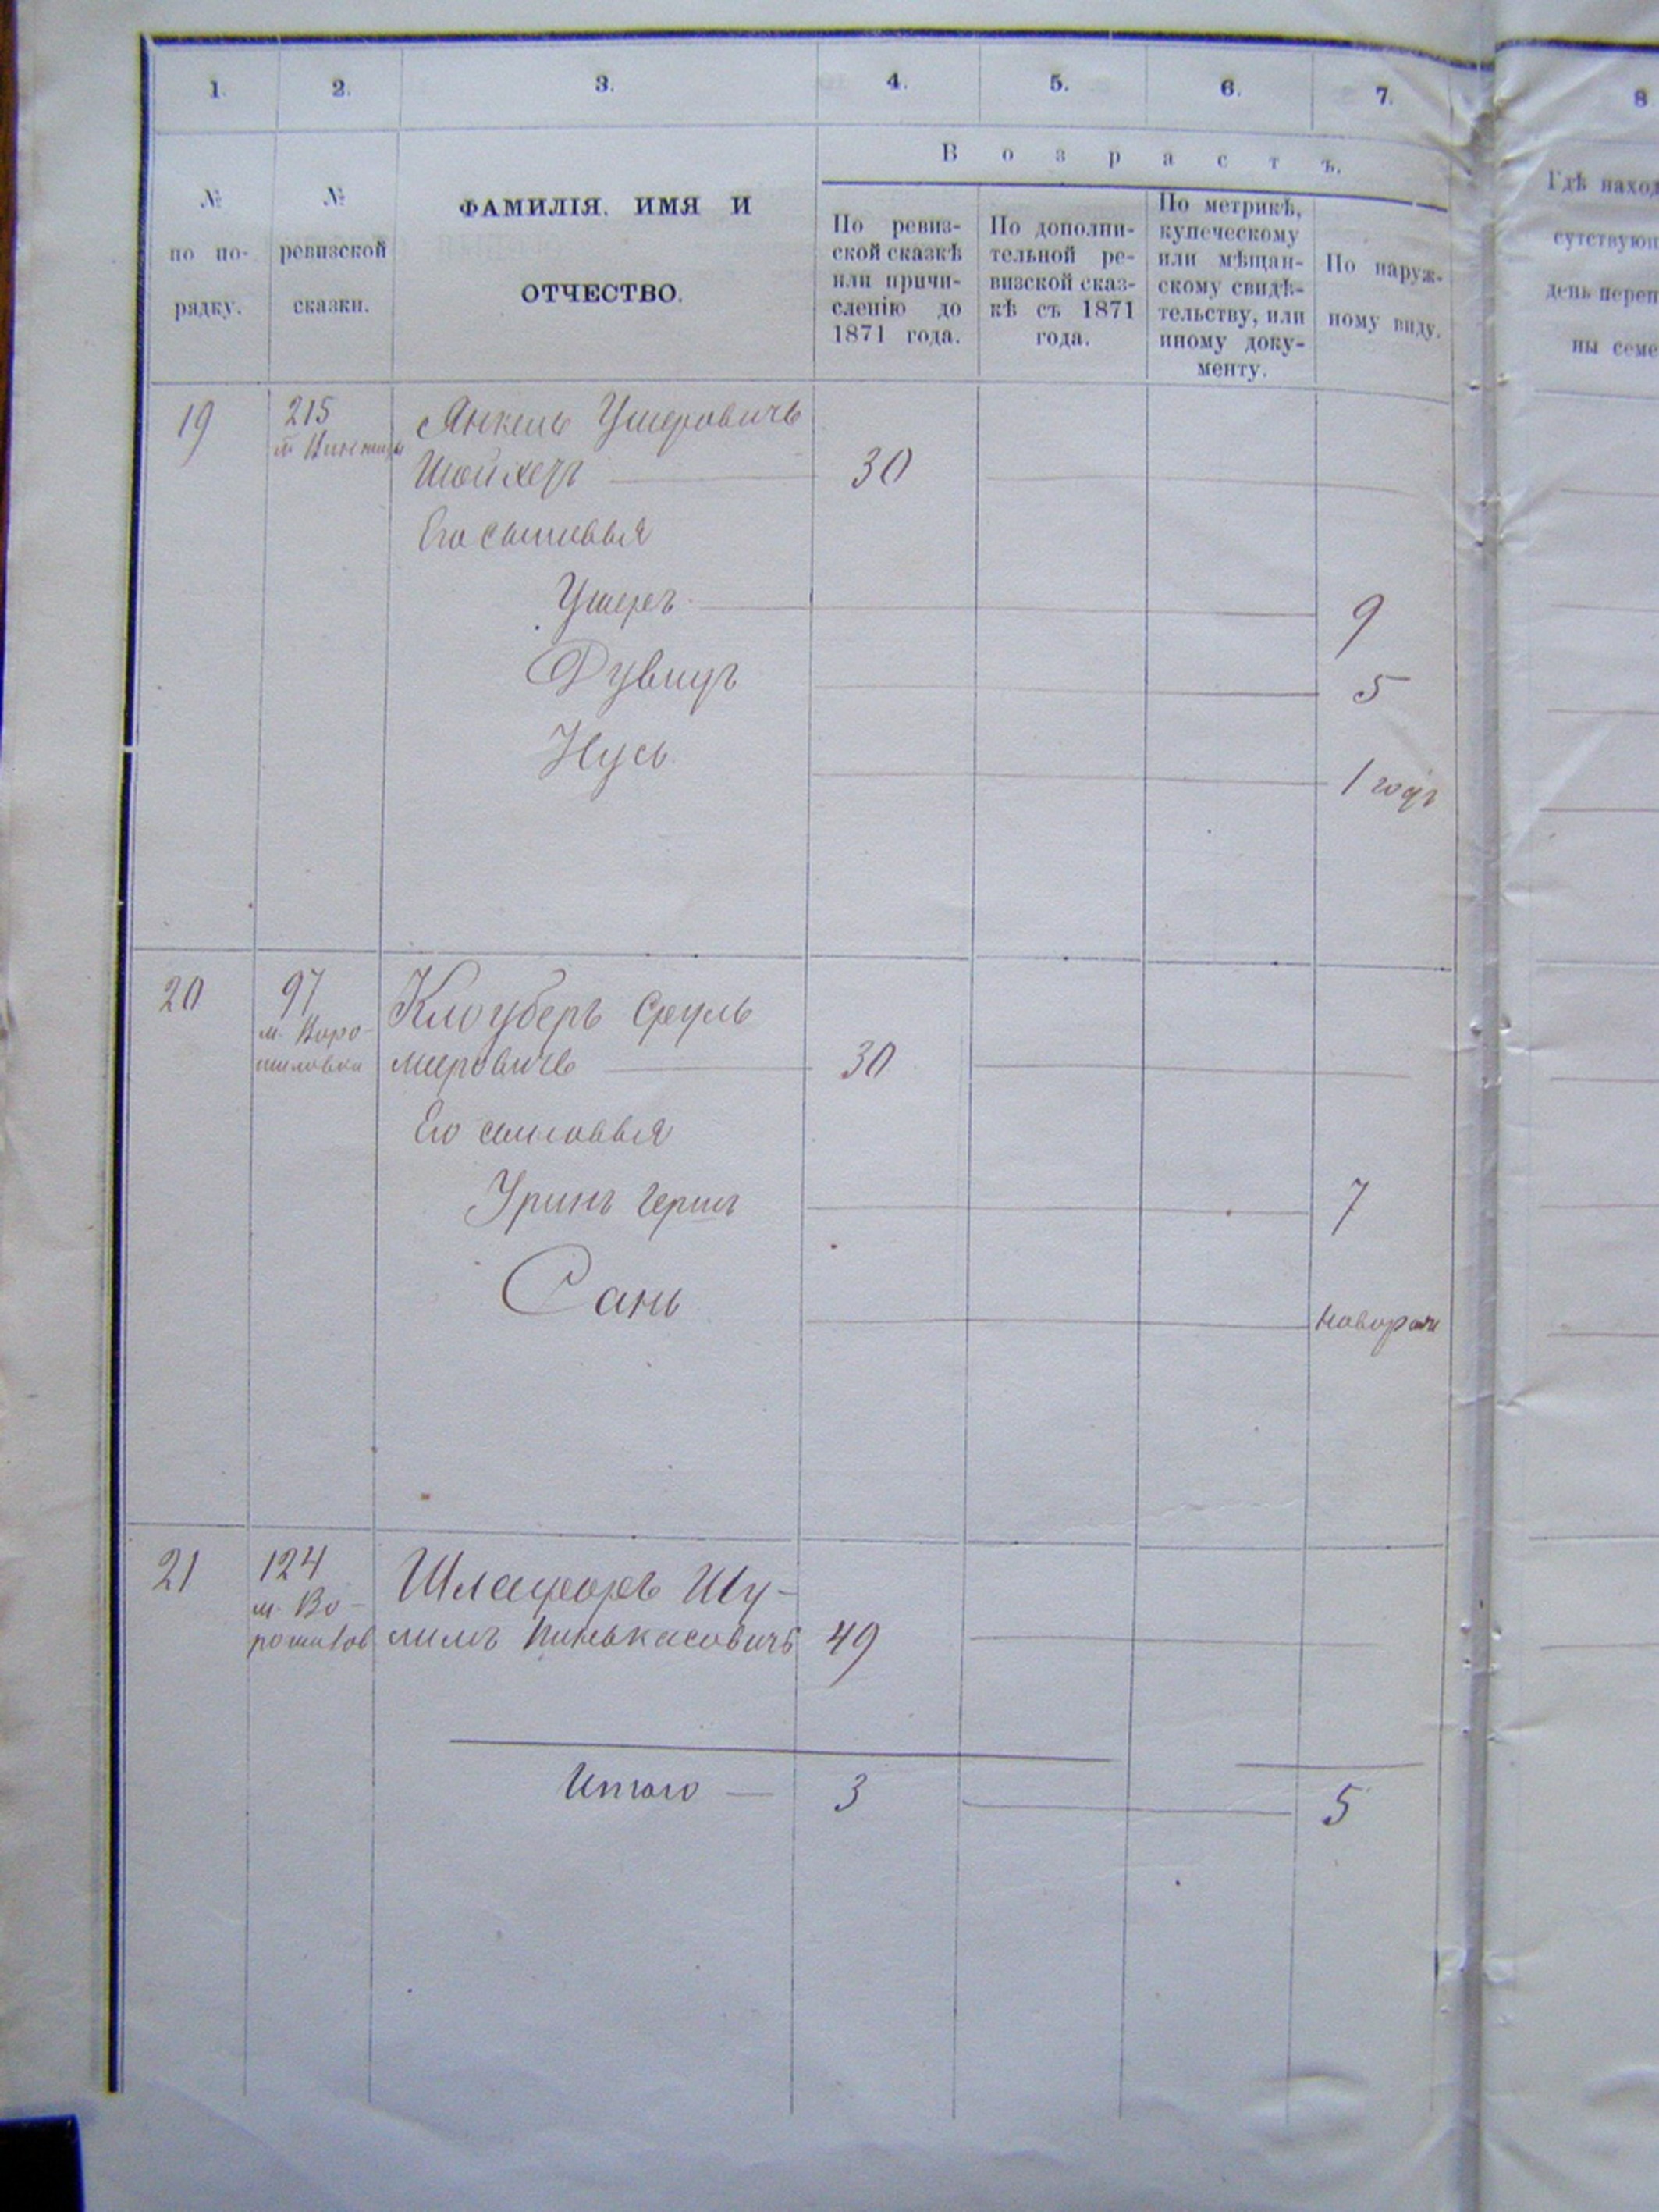 1. 2. 3. 4. 5. 6. 7. 8
В о з р а с т ъ.
№
по по-
рядку.
№
ревизской
сказки.
ФАМИЛІЯ, ИМЯ И
ОТЧЕСТВО.
По ревиз-
ской сказкѣ
или причи-
сленію до
1871 года.
По дополни-
тельной ре-
визской сказ-
кѣ съ 1871
года.
По метрикѣ,
купеческому
или мѣщан-
скому свидѣ-
тельству, или
иному доку-
менту.
По наруж-
ному виду.
Гдѣ наход
сутствующ
день переп
ны семе
19 215 Янкель Ушеровичь
Шойхетъ 30
Его сыновья
Ушеръ 9
Дувидъ 5
Нусь 1 годъ
20 97 Клоуберъ Сруль
м. Воро-
шиловка мееровичь 30
Его сыновья
Уринъ Герш 7
Сань новорож
21 124 Шлаферъ Шу-
м. Во-
рошилов лимъ Пинькасовичъ 49
Итого — 3 5